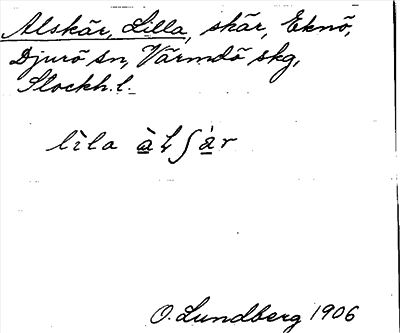 Alskär, Lilla, skär, Eknö,
Djurö sn, Värmdö skg,
Stockh. l.
lìla
O. Lundberg 1906